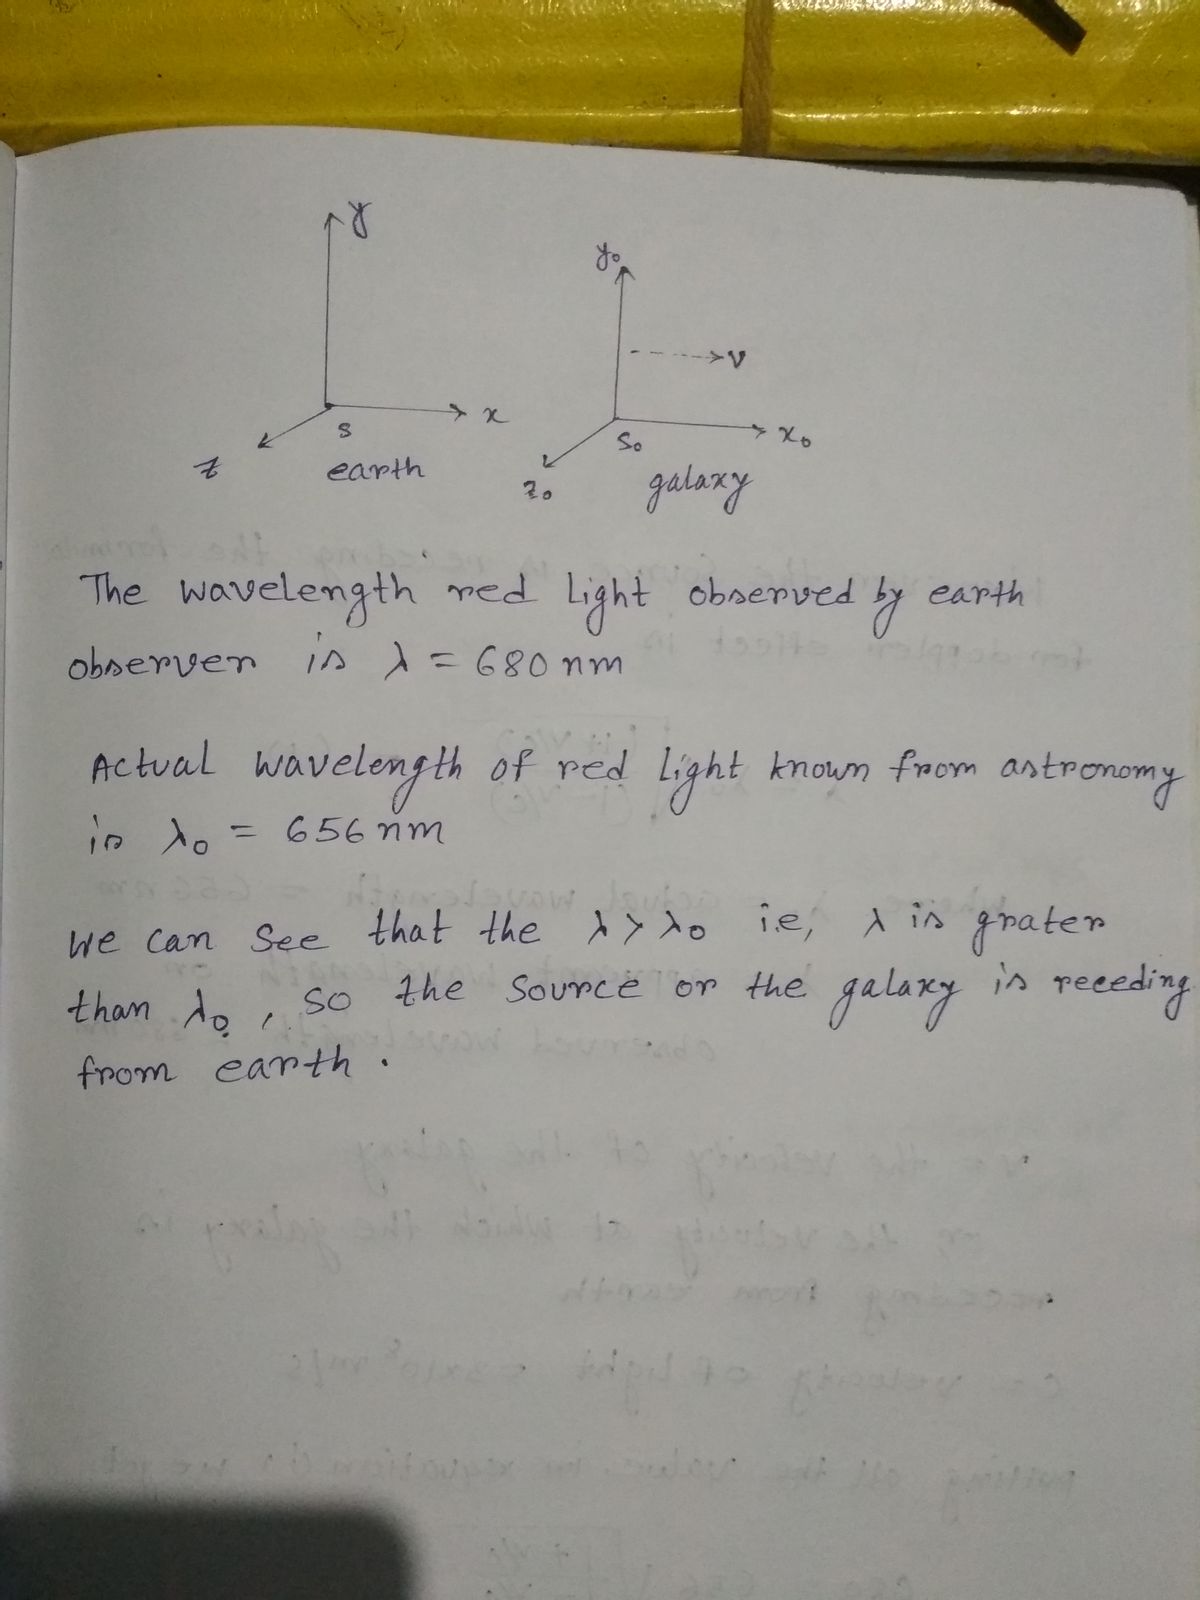 y
y₀
v
x
s
x₀
s₀
z
earth
z₀
galaxy
The wavelength red light observed by earth
observer is λ = 680 nm
Actual wavelength of red light known from astronomy
is λ₀ = 656 nm
we can see that the λ > λ₀ i.e, λ is grater
than λ₀, so the source or the galaxy is receding
from earth.